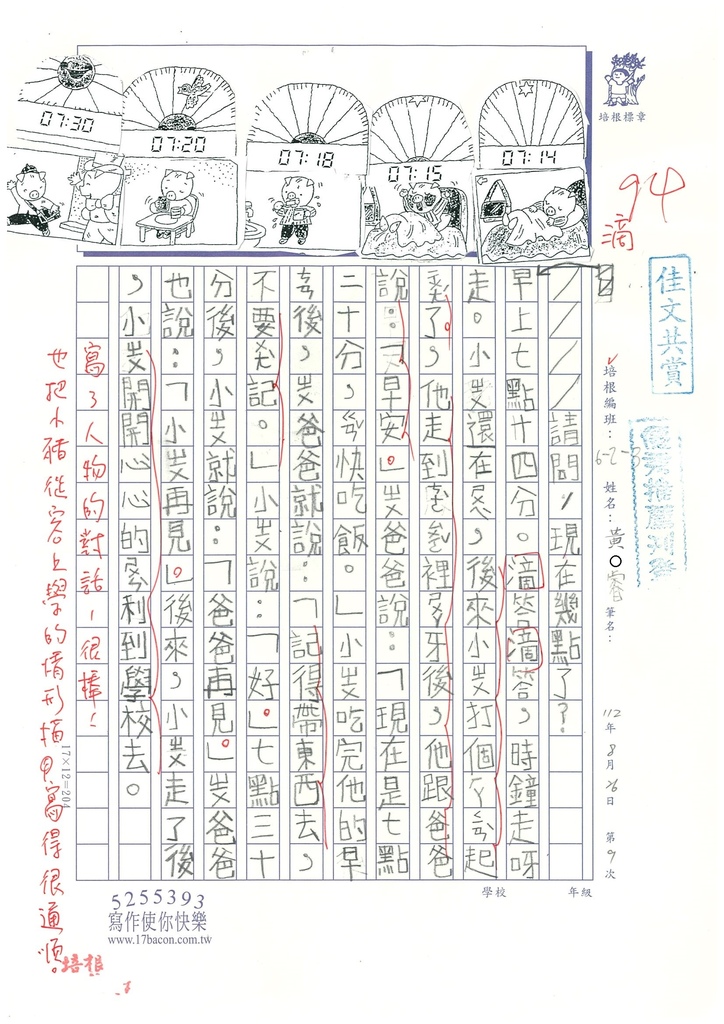 07:30
07:20
07:18
07:15
07:14
培根標章
94
滴
佳文共賞
培根編班：
6-2-3
姓名：黃○睿
筆名：
112年8月26日 第9次
請問，現在幾點了？
早上七點廿四分。滴答滴答，時鐘走呀
走。小ㄓㄨ還在ㄕㄨㄟ，後來小ㄓㄨ打個ㄏㄚ
了，他走到
裡ㄕㄨㄚ牙後，他跟爸爸
說：「早安」。ㄓㄨ爸爸說：「現在是七點
二十分，
快吃飯。」小ㄓㄨ吃完他的早
後，ㄓㄨ爸爸就說：「記得帶東西去，
不要
記。」小ㄓㄨ說：「好」。七點三十
分後，小ㄓㄨ就說：「爸爸再見」。ㄓㄨ爸爸
也說：「小ㄓㄨ再見」。後來，小ㄓㄨ走了後
，小ㄓㄨ開開心心的
利到學校去。
寫了人物的對話，很棒！
也把小豬從容上學的情形描寫得很通順。
培根
17×12=204
學校
年級
5255393
寫作使你快樂
www.17bacon.com.tw